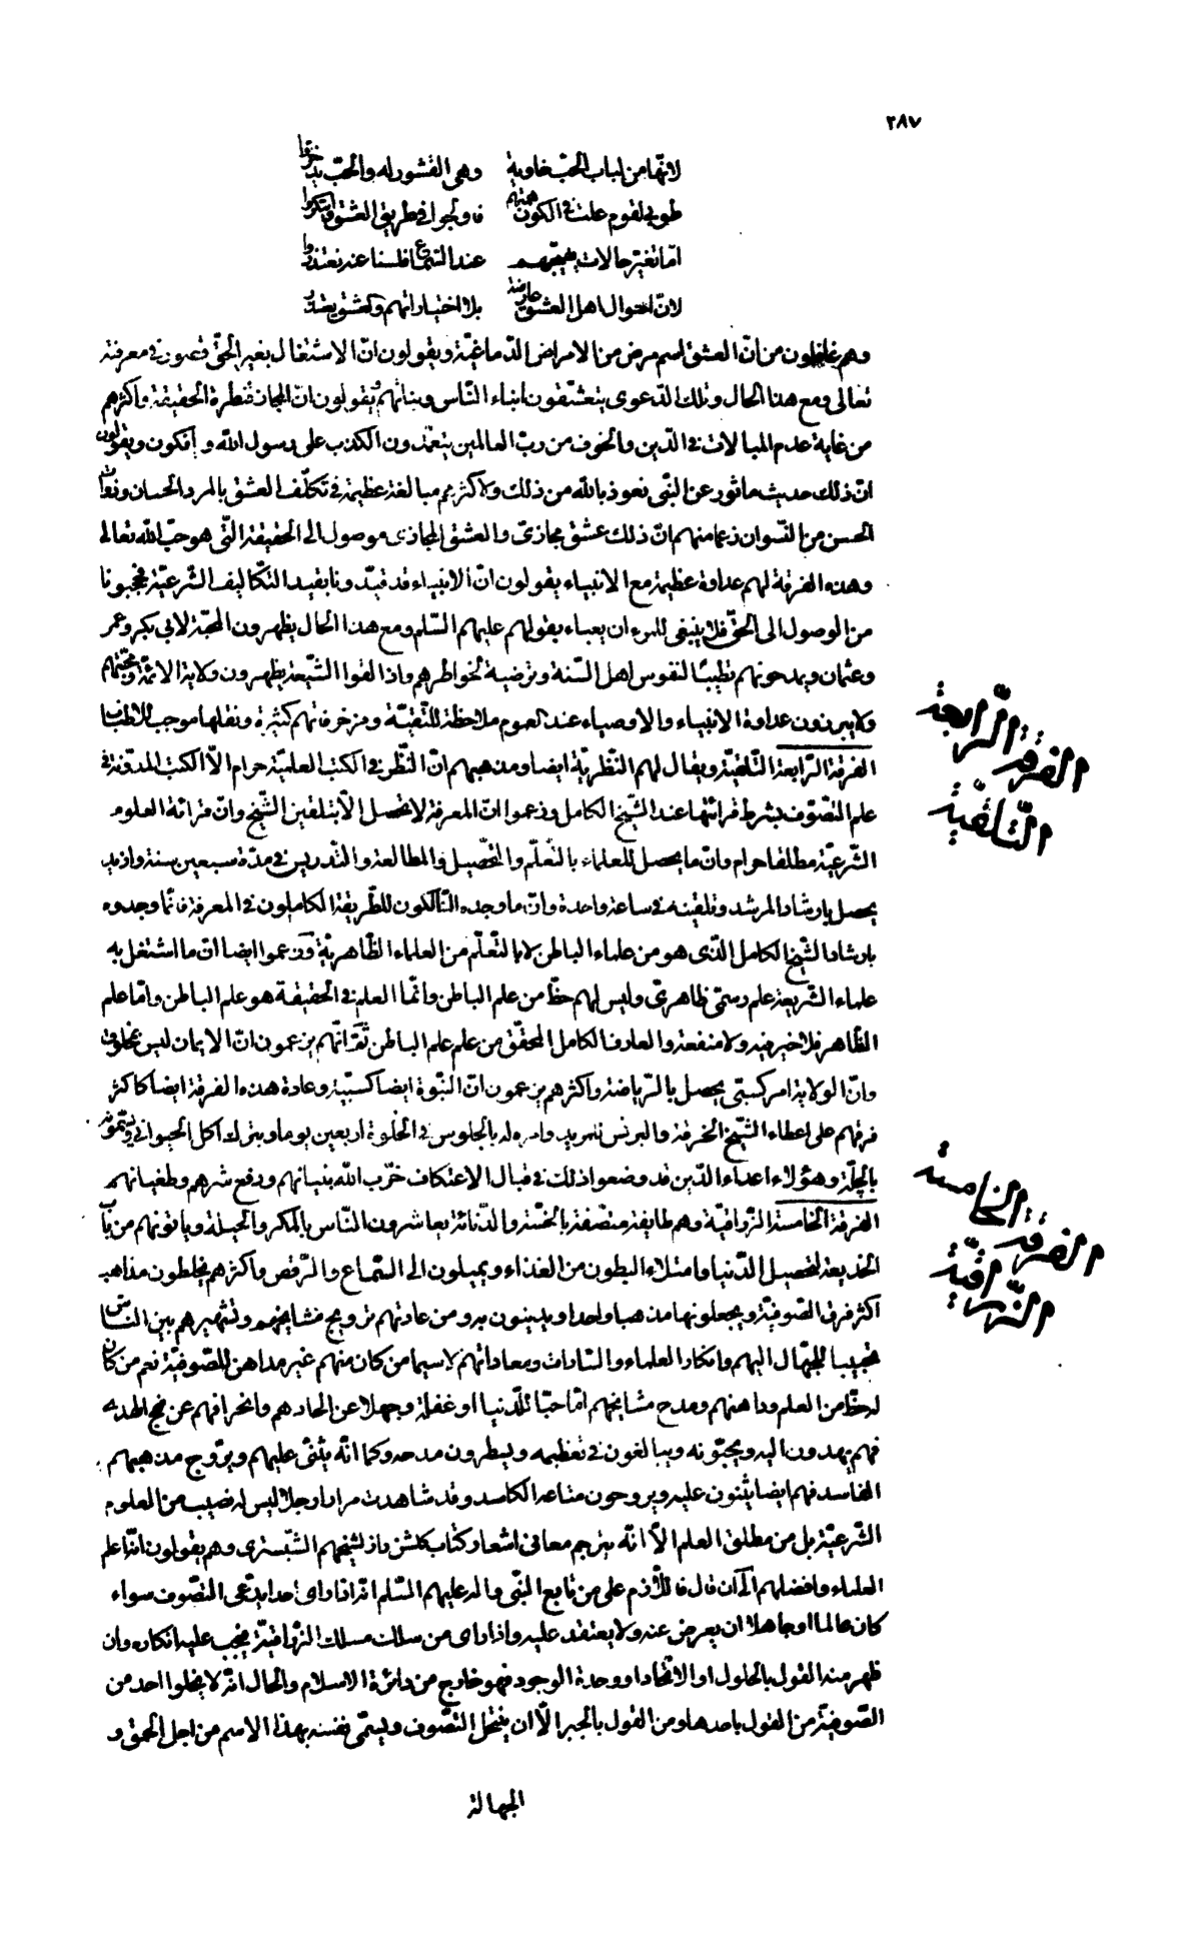 ٢٨٧
لانّها من لباب الحبّ خاوية وهى القشور له والحبّ
طوبى لقوم علت فى الكون همّتهم فاولجوا فى طريق العشق وابتكروا
امّا تغيّر حالات يغيّبهم عند السّماع فلسنا عنه نعتذروا
لانّ احوال اهل العشق عارضة بلا اختياراتهم والعشق يعتذر
وهم غافلون من انّ العشق اسم مرض من الامراض الدّماغيّة ويقولون انّ الاشتغال بغير الحقّ فى معرفته
تعالى ومع هذا الحال وتلك الدّعوى يتعشّقون ابناء النّاس وبناتهم ويقولون انّ المجاز قنطرة الحقيقة واكثرهم
من غاية عدم المبالات فى الدّين والخوف من ربّ العالمين يتعمّدون الكذب على رسول اللّه و افكون ويقولون
انّ ذلك حديث ماثور عن النّبى نعوذ باللّه من ذلك ولاكثرهم مبالغة عظيمة فى تكلّف العشق بالمرد الحسان وذوات
الحسن من النّسوان زعما منهم انّ ذلك عشق مجازى والعشق المجازى موصول الى الحقيقة الّتى هو حبّ اللّه تعالى
وهذه الفرقة لهم عداوة عظيمة مع الانبياء يقولون انّ الانبياء قد قيّدونا بقيد التّكاليف الشّرعيّة فحجبونا
من الوصول الى الحقّ فلا ينبغى للمرء ان يعباء بقولهم عليهم السّلم ومع هذا الحال يظهرون المحبّة لابى بكر وعمر
وعثمان ويمدحونهم تطييبًا لنفوس اهل السّنة وترضية لخواطرهم واذا لقوا الشّيعة يظهرون ولاية الائمّة ومحبّتهم
ولا يبرزون عداوة الانبياء والاوصياء عند العموم ملاحظة للتّقيّة ومزخرفاتهم كثيرة ونقلها موجب للاطناب
الفرقة الرّابعة التّلقينيّة ويقال لهم النّظريّة ايضا ومذهبهم انّ النّظر فى الكتب العلميّة حرام الّا الكتب المدوّنة فى
علم التّصوّف بشرط قرائتها عند الشّيخ الكامل وزعموا انّ المعرفة لا تحصل الّا بتلقين الشّيخ وانّ قرائة العلوم
الشّرعيّة مطلقا حرام وانّ ما يحصل للعلماء بالتّعلّم والتّحصيل والمطالعة والتّدريس فى مدّة سبعين سنة وازيد
يحصل بارشاد المرشد وتلقينه فى ساعة واحدة وانّ ما وجده السّالكون للطّريقة الكاملون فى المعرفة فانّما وجدوه
بارشاد الشّيخ الكامل الّذى هو من علماء الباطن لا بالتّعلّم من العلماء الظّاهريّة وزعموا ايضا انّ ما اشتغل به
علماء الشّريعة علم رسمّى ظاهرىّ وليس لهم حظّ من علم الباطن وانّما العلم فى الحقيقة هو علم الباطن وامّا علم
الظّاهر فلا خير فيه ولا منفعة والعارف الكامل المحقّق من علم علم الباطن ثمّ انّهم يزعمون انّ الايمان ليس بمخلوق
وانّ الولاية امر كسبّى يحصل بالرّياضة واكثرهم يزعمون انّ النّبوة ايضا كسبيّة وعادة هذه الفرقة ايضا كاكثر
فرقهم على اعطاء الشّيخ الخرقة والبرنس للمريد وامره له بالجلوس فى الخلوة اربعين يوما وبترك اكل الحيوانى ويسمّونه
بالچلّة وهؤلاء اعداء الدّين قد وضعوا ذلك فى قبال الاعتكاف خرّب اللّه بنيانهم ودفع شرهم وطغيانهم
الفرقة الخامسة الزّراقيّة وهم طايفة متّصفة بالخسّة والدّنائة يعاشرون النّاس بالمكر والحيلة وياتونهم من باب
الخديعة لتحصيل الدّنيا وامتلاء البطون من الغذاء ويميلون الى السّماع والرّقص واكثرهم يخلطون مذاهب
اكثر فرق الصّوفيّة ويجعلونها مذهبا واحدا ويدينون به ومن عادتهم ترويج مشايخهم وتشهيرهم بين النّاس
تحبيبا للجهّال اليهم وانكار العلماء والسّادات ومعاداتهم لاسيما من كان منهم غير مداهن للصّوفيّة نعم من كان
له حظّ من العلم وداهنهم ومدح مشايخهم امّا حبّا للدّنيا او غفلة وجهلا عن الحادهم وانحرافهم عن نهج الهدى
فهم يهدون اليه ويحبّونه ويبالغون فى تعظيمه ويسطرون مدحه وكما انّه يثنى عليهم ويروّج مذهبهم
الفاسد فهم ايضا يثنون عليه ويروجون متاعه الكاسد وقد شاهدت مرارا رجلا ليس له نصيب من العلوم
الشّرعيّة بل من مطلق العلم الّا انّه يترجم معانى اشعار كتاب گلشن راز لشيخهم الشّبسترى وهم يقولون انّه اعلم
العلماء وافضلهم الى ان قال فاللّازم على من تابع النّبى واله عليهم السّلم انّه اذا راى احدا يدّعى التّصوّف سواء
كان عالما او جاهلا ان يعرض عنه ولا يعتقد عليه واذا راى من سلك مسلك الزّراقيّة يجب عليه انكاره وان
ظهر منه القول بالحلول او الاتّحاد او وحدة الوجود فهو خارج من دائرة الاسلام والحال انّه لا يخلوا احد من
الصّوفيّة من القول باحدها ومن القول بالجبر الّا ان ينتحل التّصوّف ويسمّى نفسه بهذا الاسم من اجل الحمق و
الجهالة
الفرقة الرّابعة
التّلقينيّة
الفرقة الخامسة
الزّراقيّة